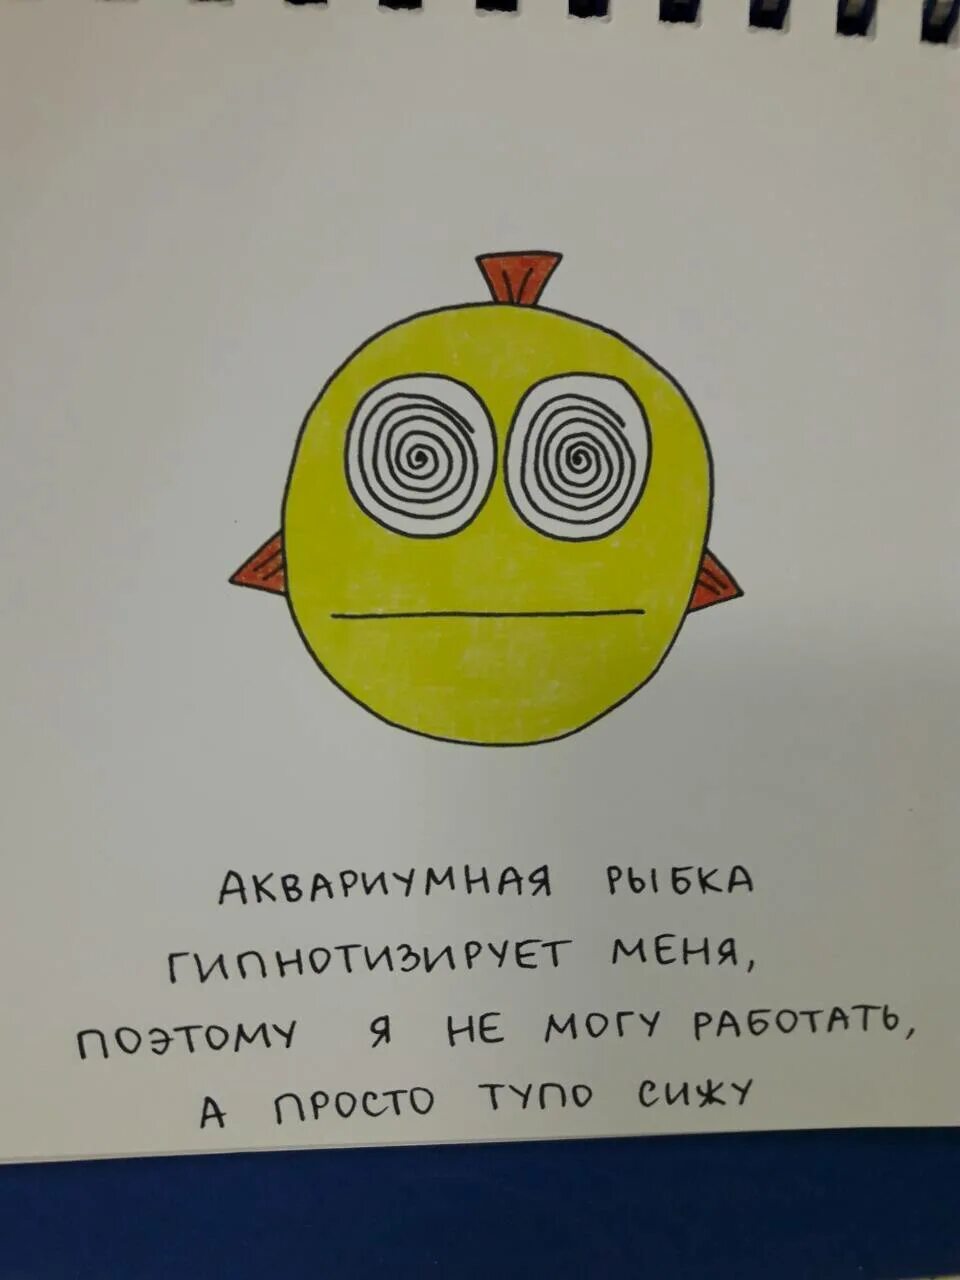 АКВАРИУМНАЯ РЫБКА
ГИПНОТИЗИРУЕТ МЕНЯ,
ПОЭТОМУ Я НЕ МОГУ РАБОТАТЬ,
А ПРОСТО ТУПО СИЖУ